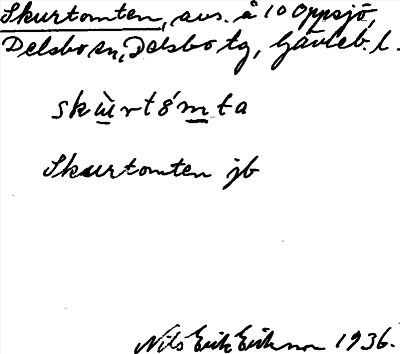 Skurtomten, avs. å 10 Oppsjö,
Delsbo sn, Delsbo tg, Gävleb. l.
skùrtǒmta
Skurtomten jb
Nils Erik Eriksson 1936.